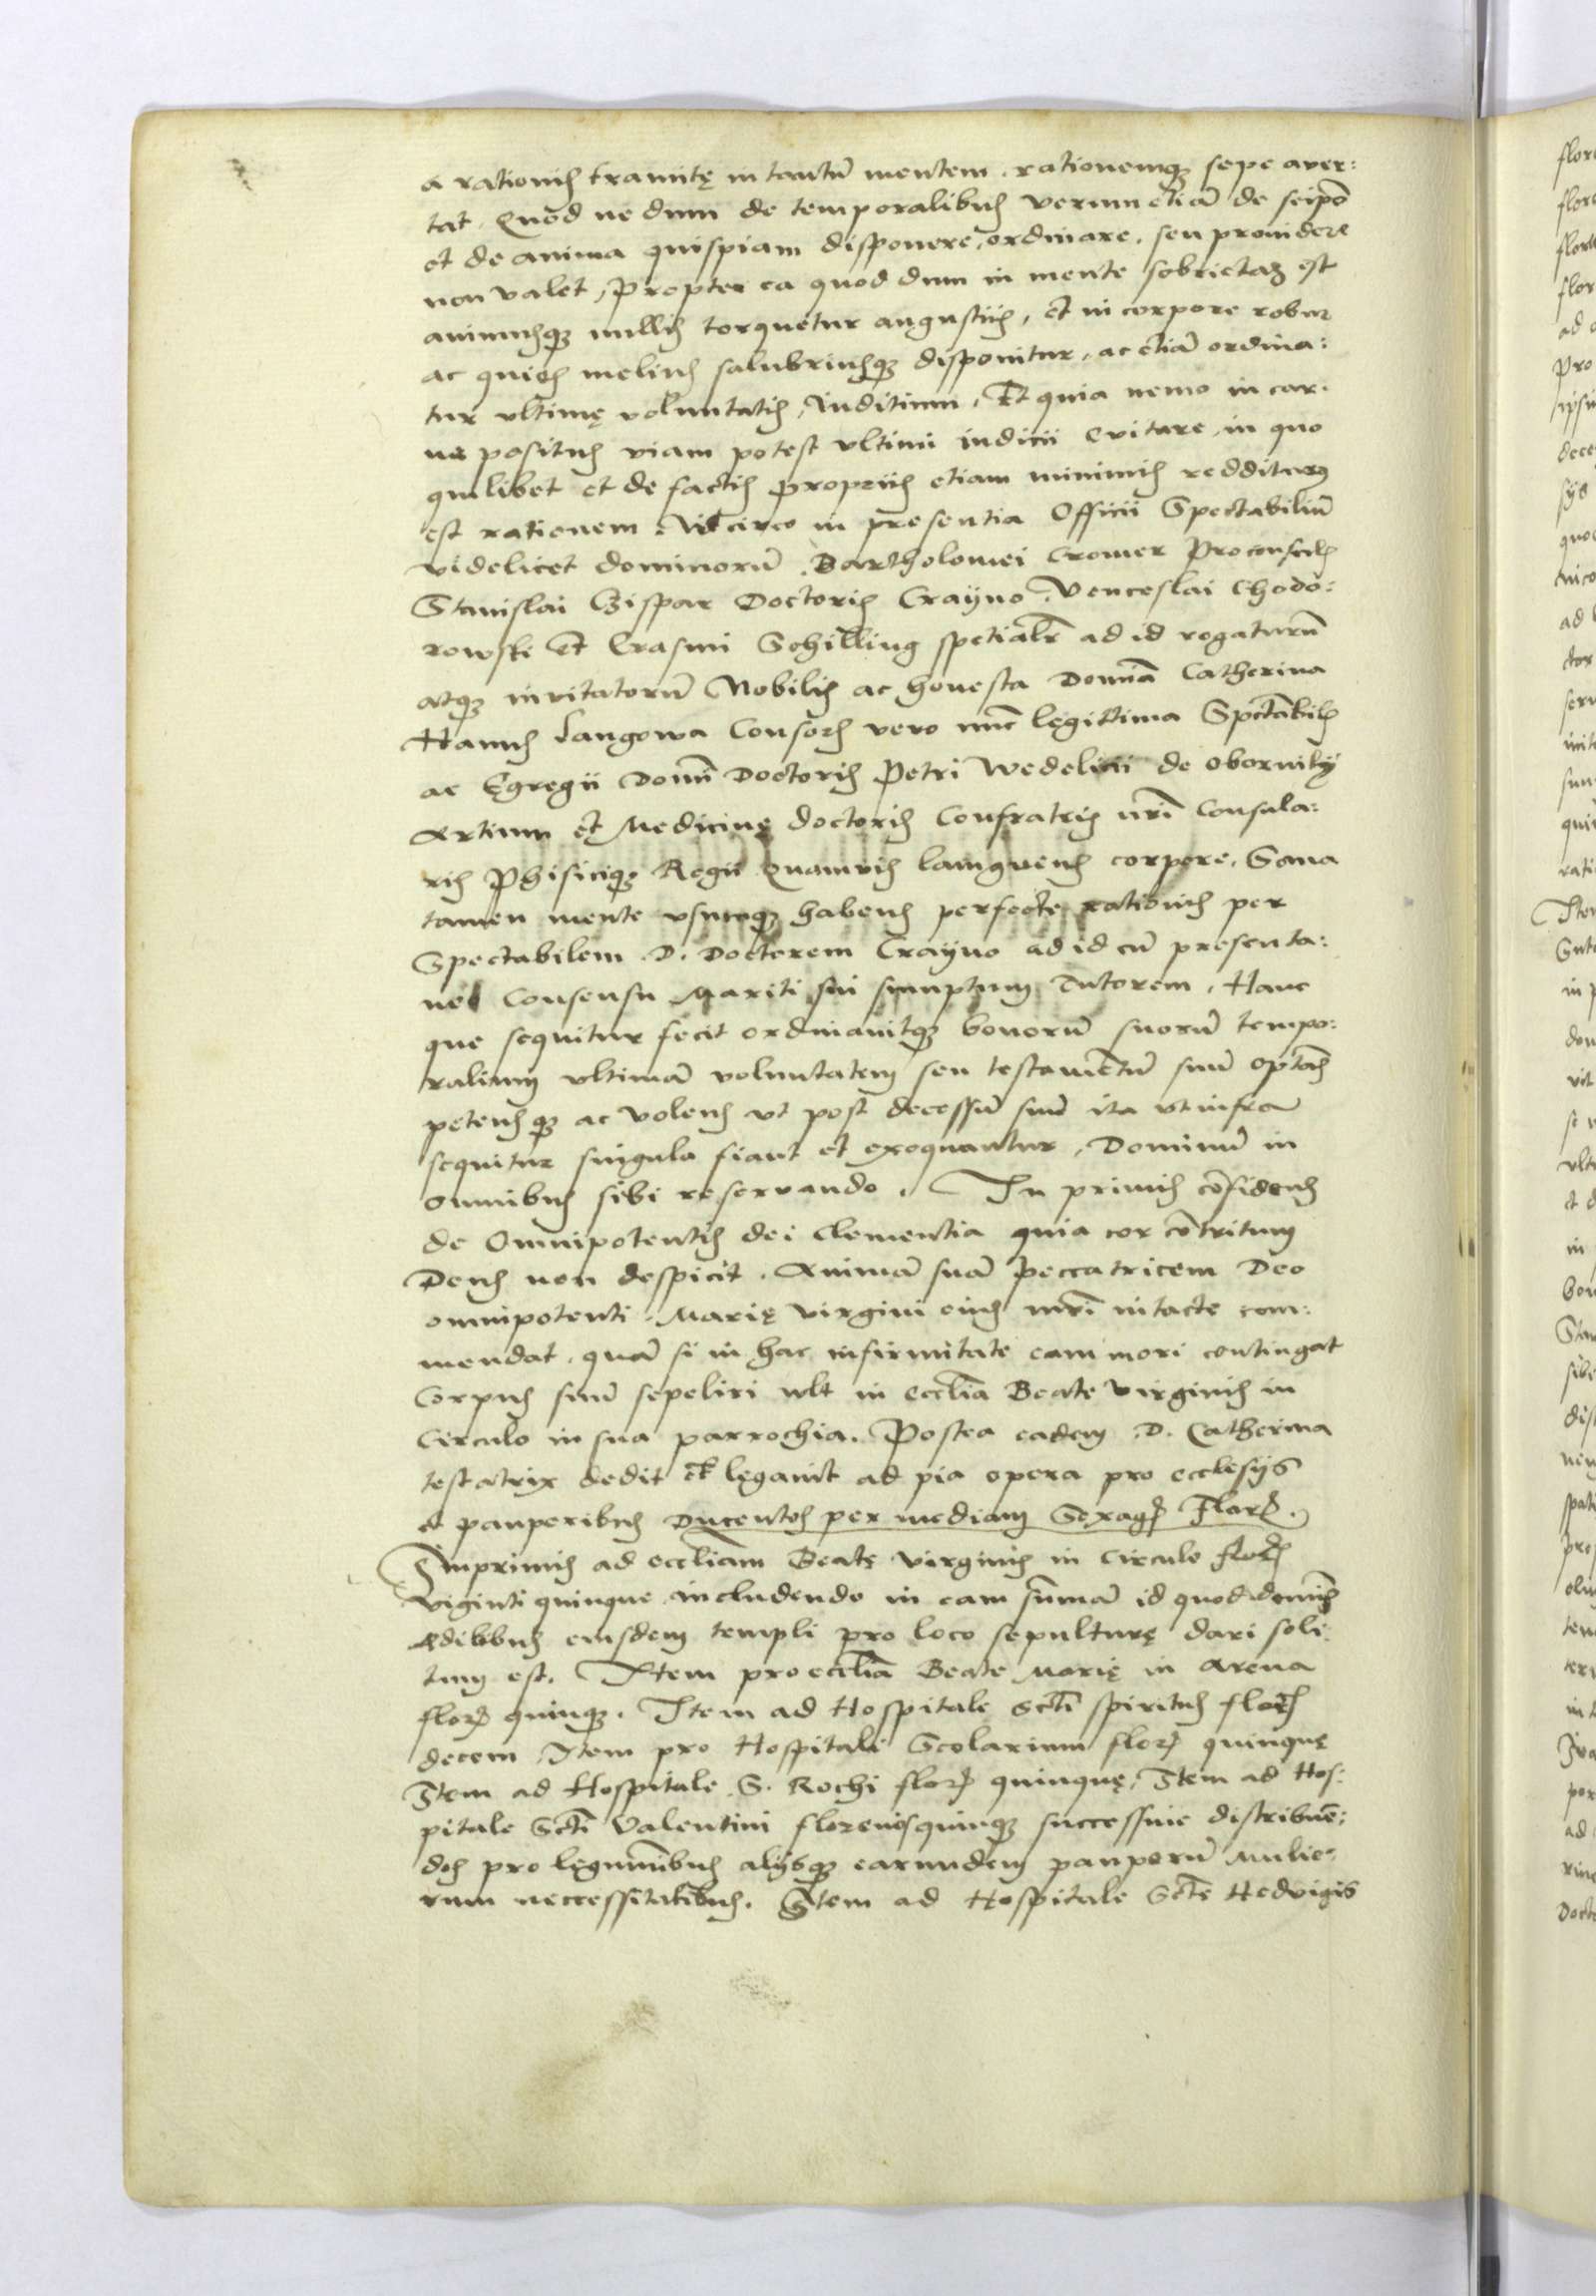 a rationis tramitę in tantū mentem rationemq; sepe aver:
tat. Quod ne dum de temporalibus verum etiā de seip̄o
et de anima quispiam disponere, ordinare, seu providere
non valet, Propter ea quod dum in mente sobrietas est
animusq; nullis torquetur angustiis, et in corpore robur
ac quies melius salubriusq; disponitur, ac etiā ordina:
tur ultimę voluntatis Iuditium, Et quia nemo in car:
ne positus viam potest ultimi iudicii evitare, in quo
quilibet et de factis propriis etiam minimis redditurus
est rationem. Idcirco in presentia Officii Spectabiliū
videlicet dominorū Bartholomei Cromer Proconsulis
Stanislai Gispar Doctoris Crayno Venceslai Chodo:
rowski Et Erasmi Schilling spetialr̄ ad id rogatorū
atq; invitatorū Nobilis ac honesta Domīa Catherina
Hanus Langowa Consors vero nūc legittima Spectabilis
ac Egregii Domī Doctoris Petri Wedelicii de Oborniky
Artium et Medicinę doctoris Confratris nr̄i Consula:
ris Phisiciq; Regii Quamvis languens corpore, Sana
tamen mente usumq; habens perfecte rationis per
Spectabilem D. Doctorem Crayno ad id cū presenta:
nei Consensu Mariti sui sumptum Tutorem, Hanc
que sequitur fecit ordinavitq; bonorū suorū tempo:
ralium ultimā voluntatem seu testamentū suū optās
petensq; ac volens ut post decessū suū ita ut infra
sequitur singula fiant et exequantur, Dominiū in
omnibus sibi reservando. In primis cōfidens
de Omnipotentis dei Clementia quia cor cōtritum
Deus non despicit. Animā suā peccatricem Deo
omnipotenti, Marię virgini eius mr̄i intacte com:
mendat, quā si in hac infirmitate eam mori contingat
Corpus suū sepeliri vult in eccl̄ia Beate Virginis in
Circulo in sua parrochia. Postea eadem D. Catherina
testatrix dedit et legavit ad pia opera pro ecclesiis
et pauperibus Ducentos per mediam Sexag̃ Flor̃.
Imprimis ad eccl̄iam Beatę virginis in Circulo flor̃
viginti quinque includendo in eam sūmā id quod dominis
ędilibus eiusdem templi pro loco sepulturę dari soli:
tum est. Item pro eccl̄ia Beate Marię in Arena
flor̃ quinq;. Item ad Hospitale Sct̄i spiritus flor̃
decem Item pro Hospitali Scolarium flor̃ quinquę
Item ad Hospitale S. Rochi flor̃ quinquę, Item ad Hos:
pitale Sct̄i Valentini florenos quinq; successive distribuē:
dos pro leguminibus alysq; earundem pauperū mulie:
rum neccessitatibus. Item ad Hospitale Scte Hedvigis